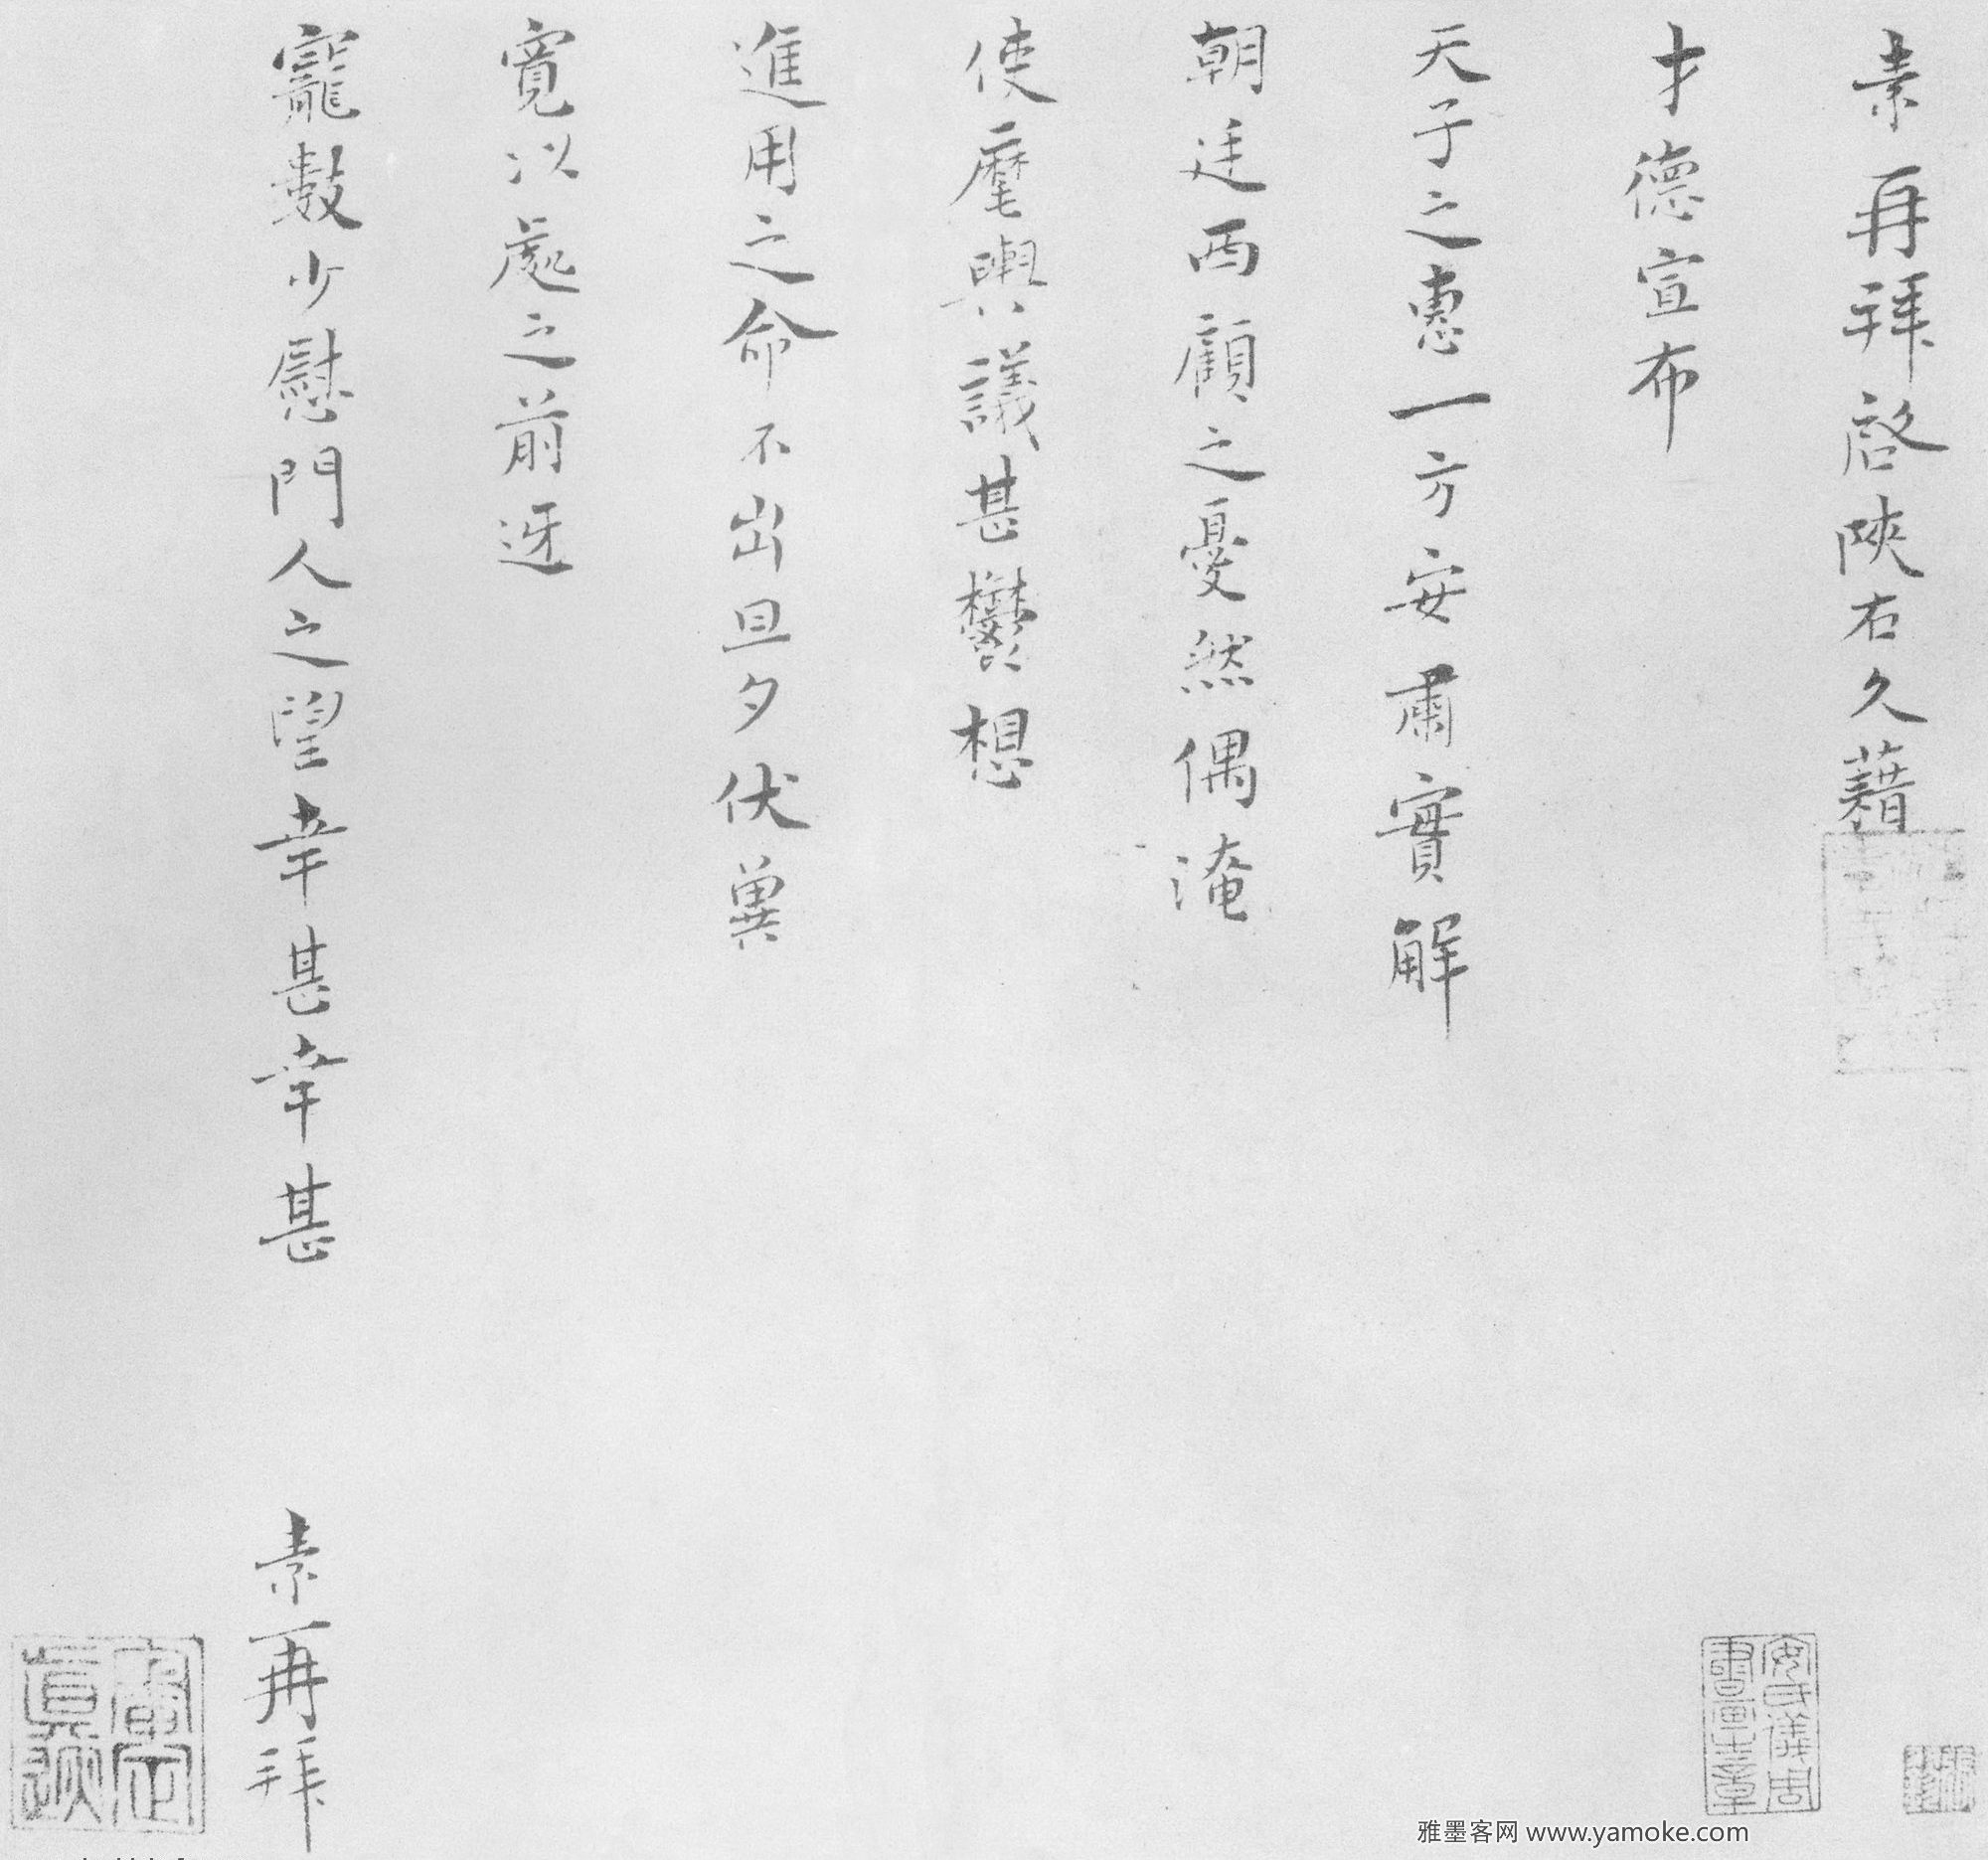 素再拜啓陝右久藉
才德宣布
天子之惠一方安肅實解
朝廷西顧之憂然偶淹
使麾輿議甚鬱想
進用之命不出旦夕伏冀
寬以處之前迓
寵數少慰門人之望幸甚幸甚
素再拜
安氏儀周
書畫之章
雅墨客网 www.yamoke.com